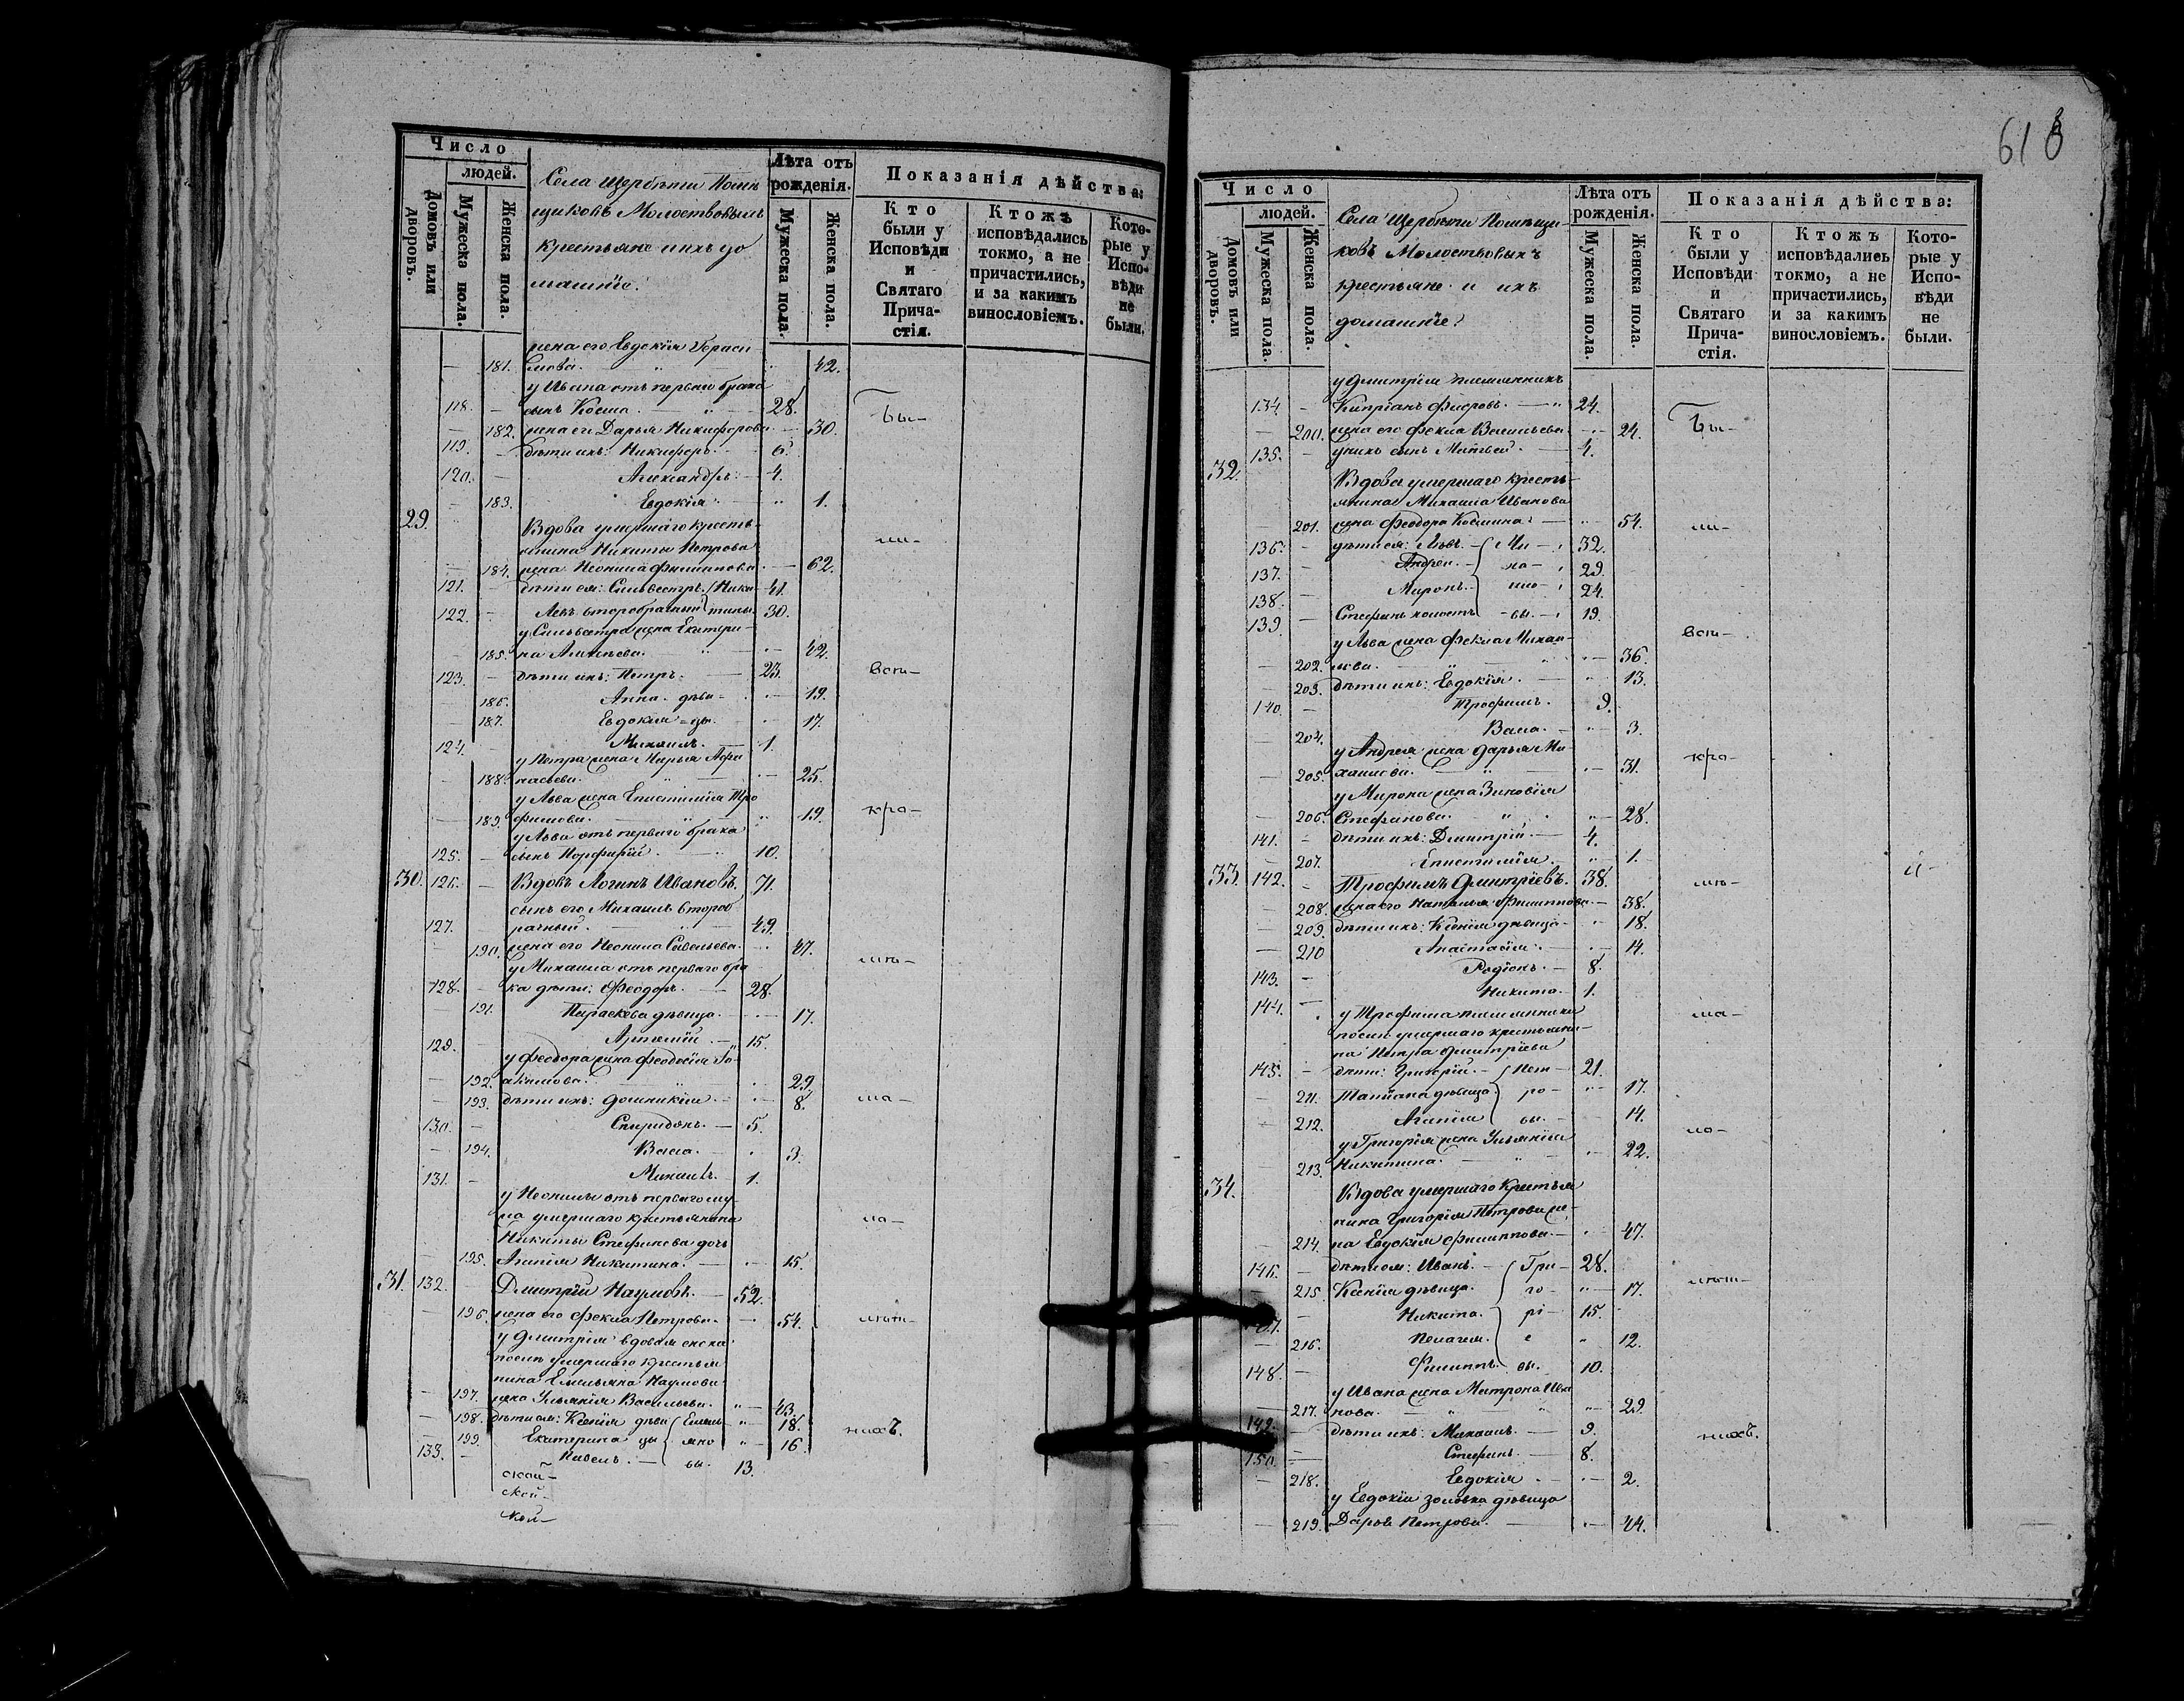 Число
людей.
Домовъ или дворовъ.
Мужеска пола.
Женска пола.
Села Щербѣти Помѣ
щиковъ Молостовыхъ
крестьяне и ихъ до
машніе.
Лѣта отъ
рожденія.
Мужеска пола.
Женска пола.
Показанія дѣйства:
Кто
были у
Исповѣди
и
Святаго
Прича-
стія.
Ктожъ
исповѣдались
токмо, а не
причастились,
и за какимъ
винословіемъ.
Кото-
рые у
Испо-
вѣди
не
были.
жена его Евдокія Гераси
181. мова. 42.
у Ивана отъ перваго брака
118. сынъ Косма. 28. Бы-
182. жена его Дарья Никифорова 30.
119. дѣти ихъ: Никифоръ. 6.
120. Александръ. 4.
183. Евдокія. 1.
29. Вдова умершаго кресть
янина Никиты Петрова ли-
184. жена Неонила Филиппова 62.
121. дѣти ея: Сильвестръ. Ники- 41.
122. Левъ второбрачный тины 30.
у Сильвестра жена Екатери-
185. на 42.
123. дѣти ихъ: Петръ. 23. вси-
186. Анна дѣви- 19.
187. Евдокія цы. 17.
124. Михаилъ. 1.
у Петра жена Марья Афа
188. насьева. 25.
у Льва жена Епистимія Тро
189. фимова. 19. кро-
у Льва отъ перваго брака
125. сынъ Порфирій. 10.
30. 126. Вдовъ Логинъ Ивановъ. 71.
сынъ его Михаилъ второб
127. рачный. 49.
190. жена его Неонила Савельева. 47.
у Михаила отъ перваго бра мѣ-
128. ка дѣти: Феодоръ. 28.
191. Параскева дѣвица. 17.
129. Артемій. 15.
у Феодора жена Феодосія Іо-
192. акимова. 29.
193. дѣти ихъ: Домникія. 8. ма-
130. Спиридонъ. 5.
194. Васса. 3.
131. Михаилъ. 1.
у Неонилы отъ перваго му-
жа умершаго крестьянина ло-
Никиты Стефанова дочь
195. Агапія Никитина. 15.
31. 132. Дмитрій Наумовъ. 52.
196. жена его Фекла Петрова. 54. лѣтн-
у Дмитрія вдовая сноха
послѣ умершаго крестья
нина Емельяна Наумова
197. жена Ульянія Васильева. 43.
198. дѣти ея: Ксенія дѣви Емель 18. нихъ.
199. Екатерина цы яно 16
133. Павелъ. вы. 13.
ской-
ской-
кой-
61
Число
людей.
Домовъ или дворовъ.
Мужеска пола.
Женска пола.
Села Щербѣти Помѣщи-
ковъ Молостовыхъ
крестьяне и ихъ
домашніе.
Лѣта отъ
рожденія.
Мужеска пола.
Женска пола.
Показанія дѣйства:
Кто
были у
Исповѣди
и
Святаго
Прича-
стія.
Ктожъ
исповѣдались
токмо, а не
причастились,
и за какимъ
винословіемъ.
Кото-
рые у
Испо-
вѣди
не
были.
у Дмитрія племянникъ
134. Кипріанъ 24. Бы-
200. жена его Фекла Васильева 24.
135. у нихъ сынъ Матвей. 4.
32. Вдова умершаго кресть-
янина Михаила Иванова
201. жена Феодора Космина. 54. ли-
136. дѣти ея: Левъ. Ми- 32.
137. Андрей. ха- 29.
138. Миронъ. ило- 24.
139. Стефанъ холостъ вы. 19.
у Льва жена Фекла Михаи- вси-
202. лова. 36.
203. дѣти ихъ: Евдокія. 13.
140. Трофимъ. 9.
204. Васса. 3.
у Андрея жена Дарья Ми- кро-
205. хаилова. 31.
у Мирона жена Зиновія
206. Стефанова. 28.
141. дѣти ихъ: Дмитрій. 4.
207. Епистимія. 1. и-
33. 142. Трофимъ Дмитріевъ. 38. мѣ-
208. жена его Наталья Филиппова 38.
209. дѣти ихъ: Ксенія дѣвица 18.
210 Анастасія. 14.
143. Родіонъ. 8.
144. Никита. 1.
у Трофима племянники ма-
послѣ умершаго крестьяни-
на Петра Дмитріева
145. дѣти: Григорій. Пет- 21.
211. Татіана дѣвица. ро- 17.
212. Агапія вы. 14.
у Григорія жена Ульянія ло-
213. Никитина. 22.
34. Вдова умершаго крестья
нина Григорія Петрова же-
214. на Евдокія Филиппова. 47.
146. дѣти ея: Иванъ. Гри- 28.
215. Ксенія дѣвица. го- 17. лѣтн-
147. Никита. рі- 15.
216. Пелагея. е 12.
148. Филиппъ. вы. 10.
у Ивана жена Матрона Ива
217. нова. 29.
149. дѣти ихъ: Михаилъ. 9. нихъ.
150. Стефанъ. 8.
218. Евдокія. 2.
у Евдокіи золовка дѣвица
219. Дарья Петрова. 44.